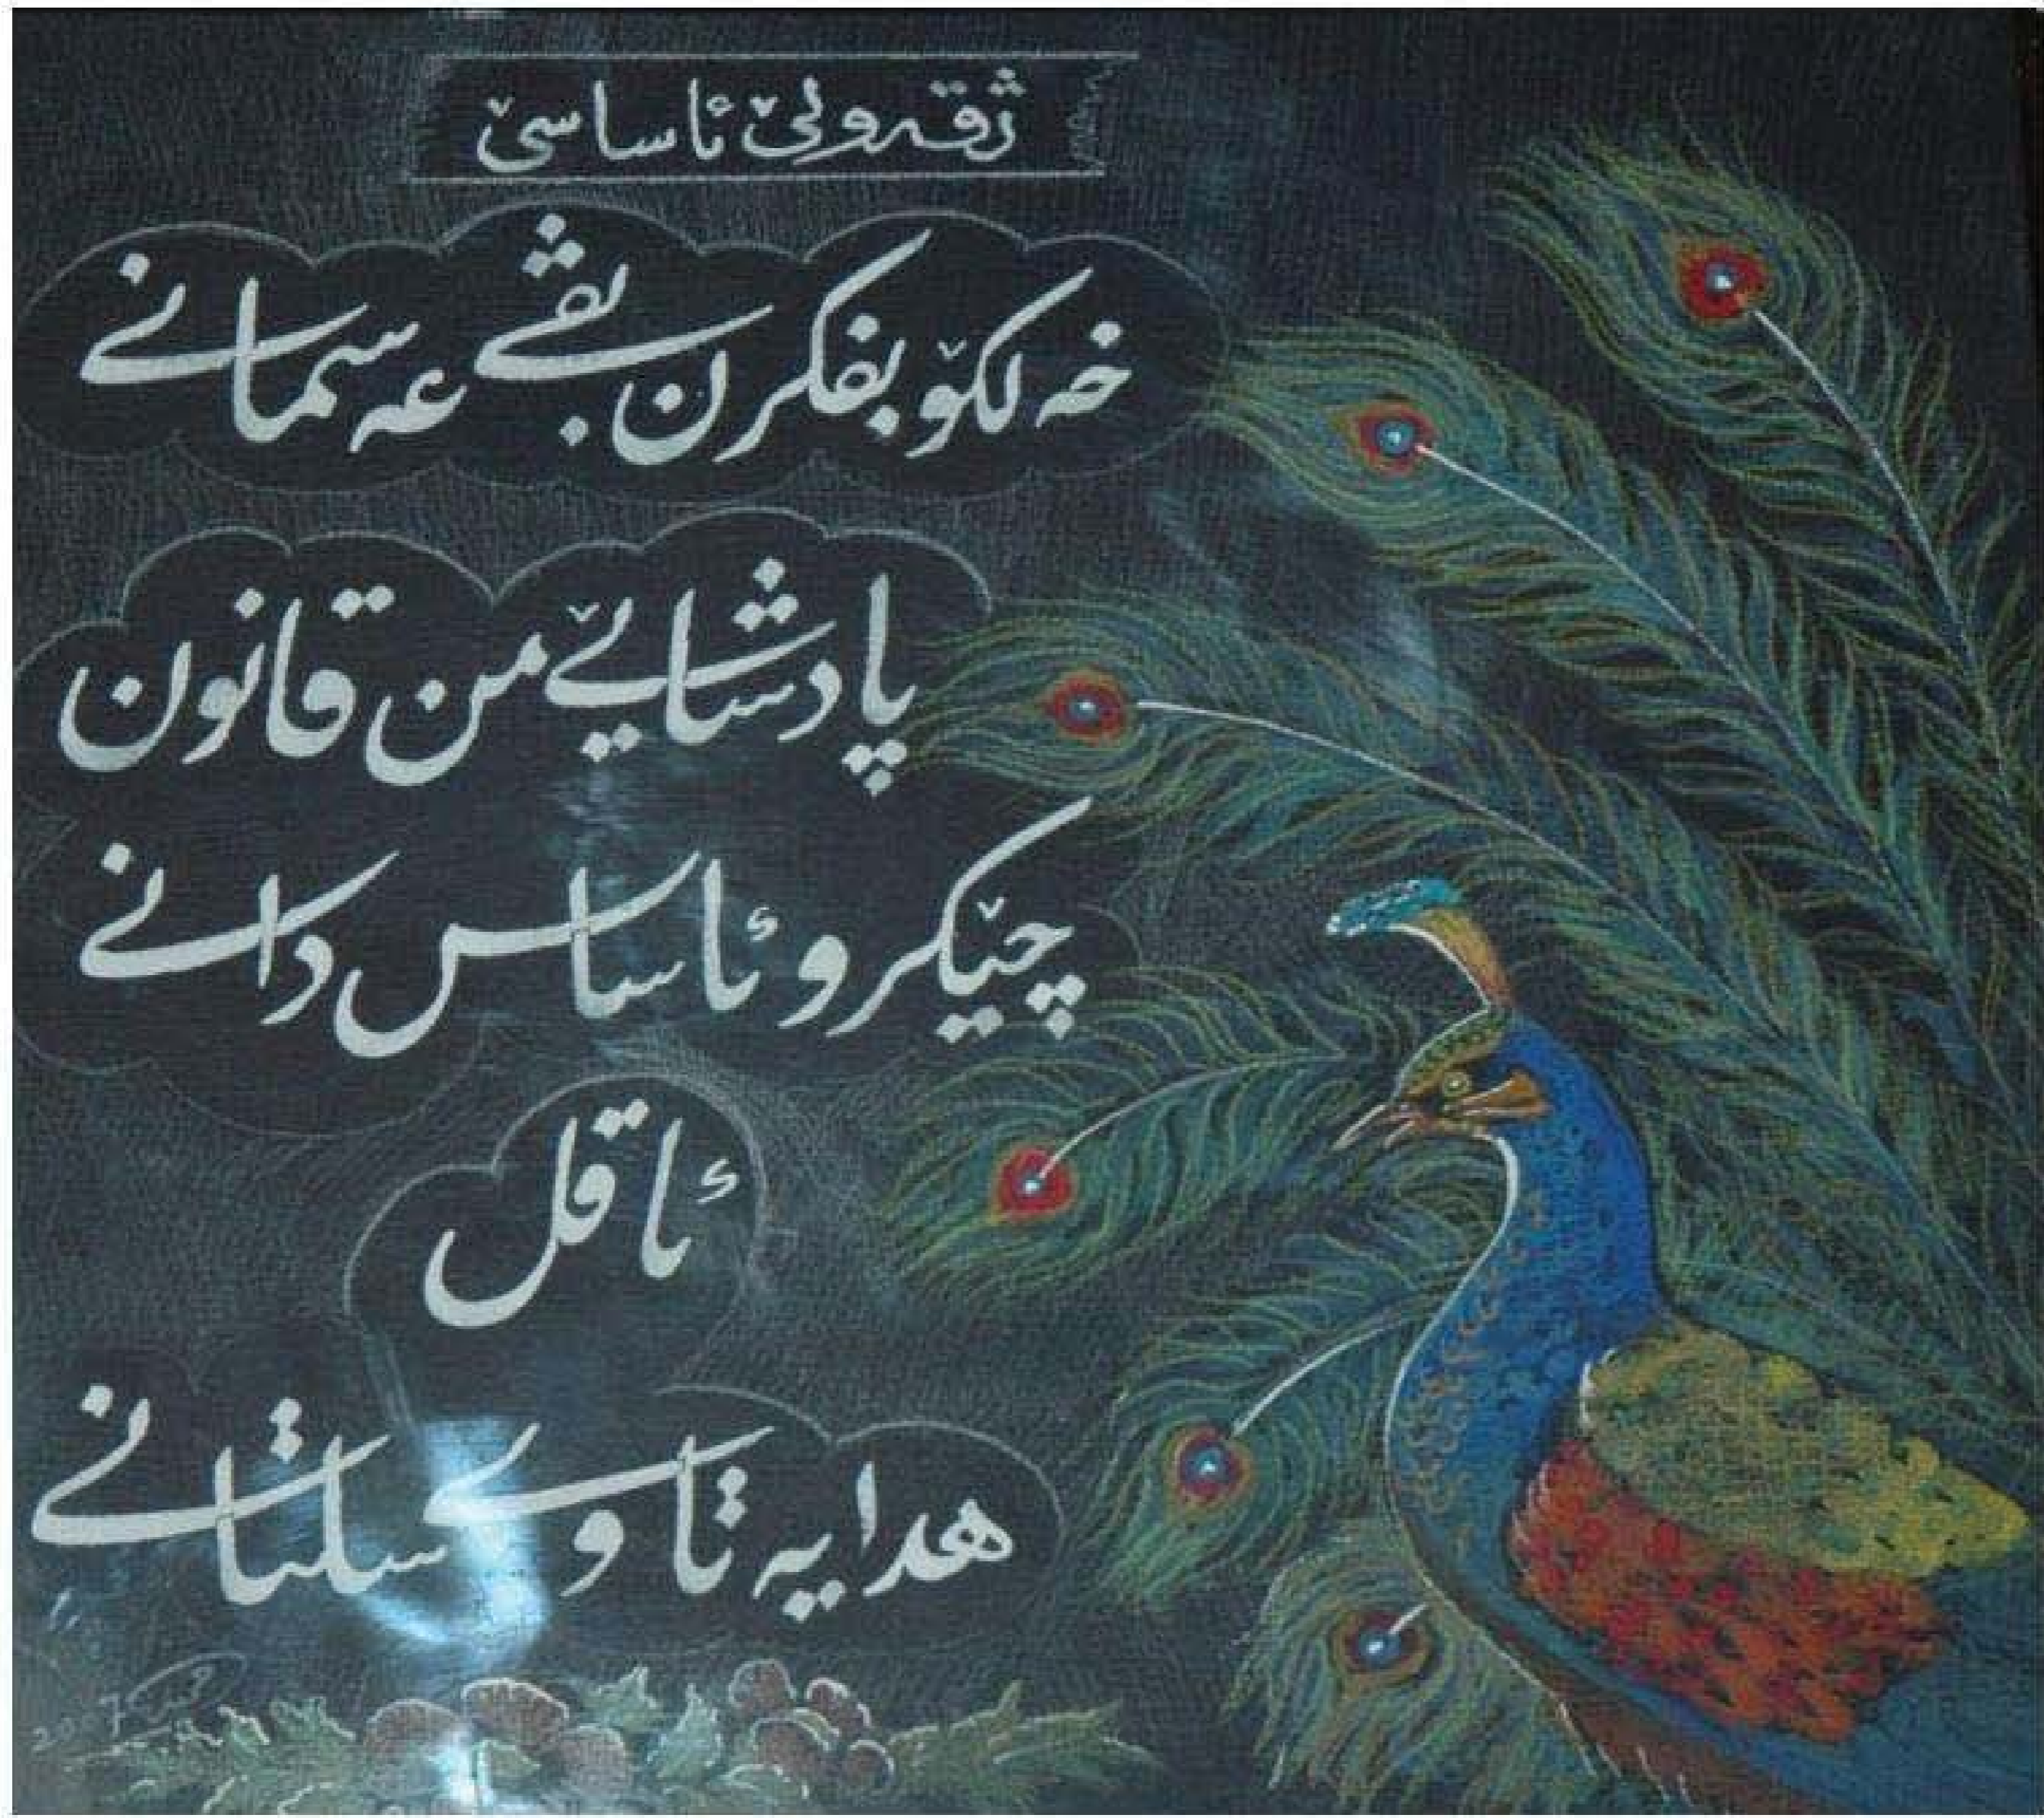 ژقەولێ ئاساسێ
خەلکۆ بفکرن بڤێ عەسمانێ
پادشایێ من قانون
چێکر و ئاساس دانێ
ئاقل
هدایە تاوسێ سلتانێ